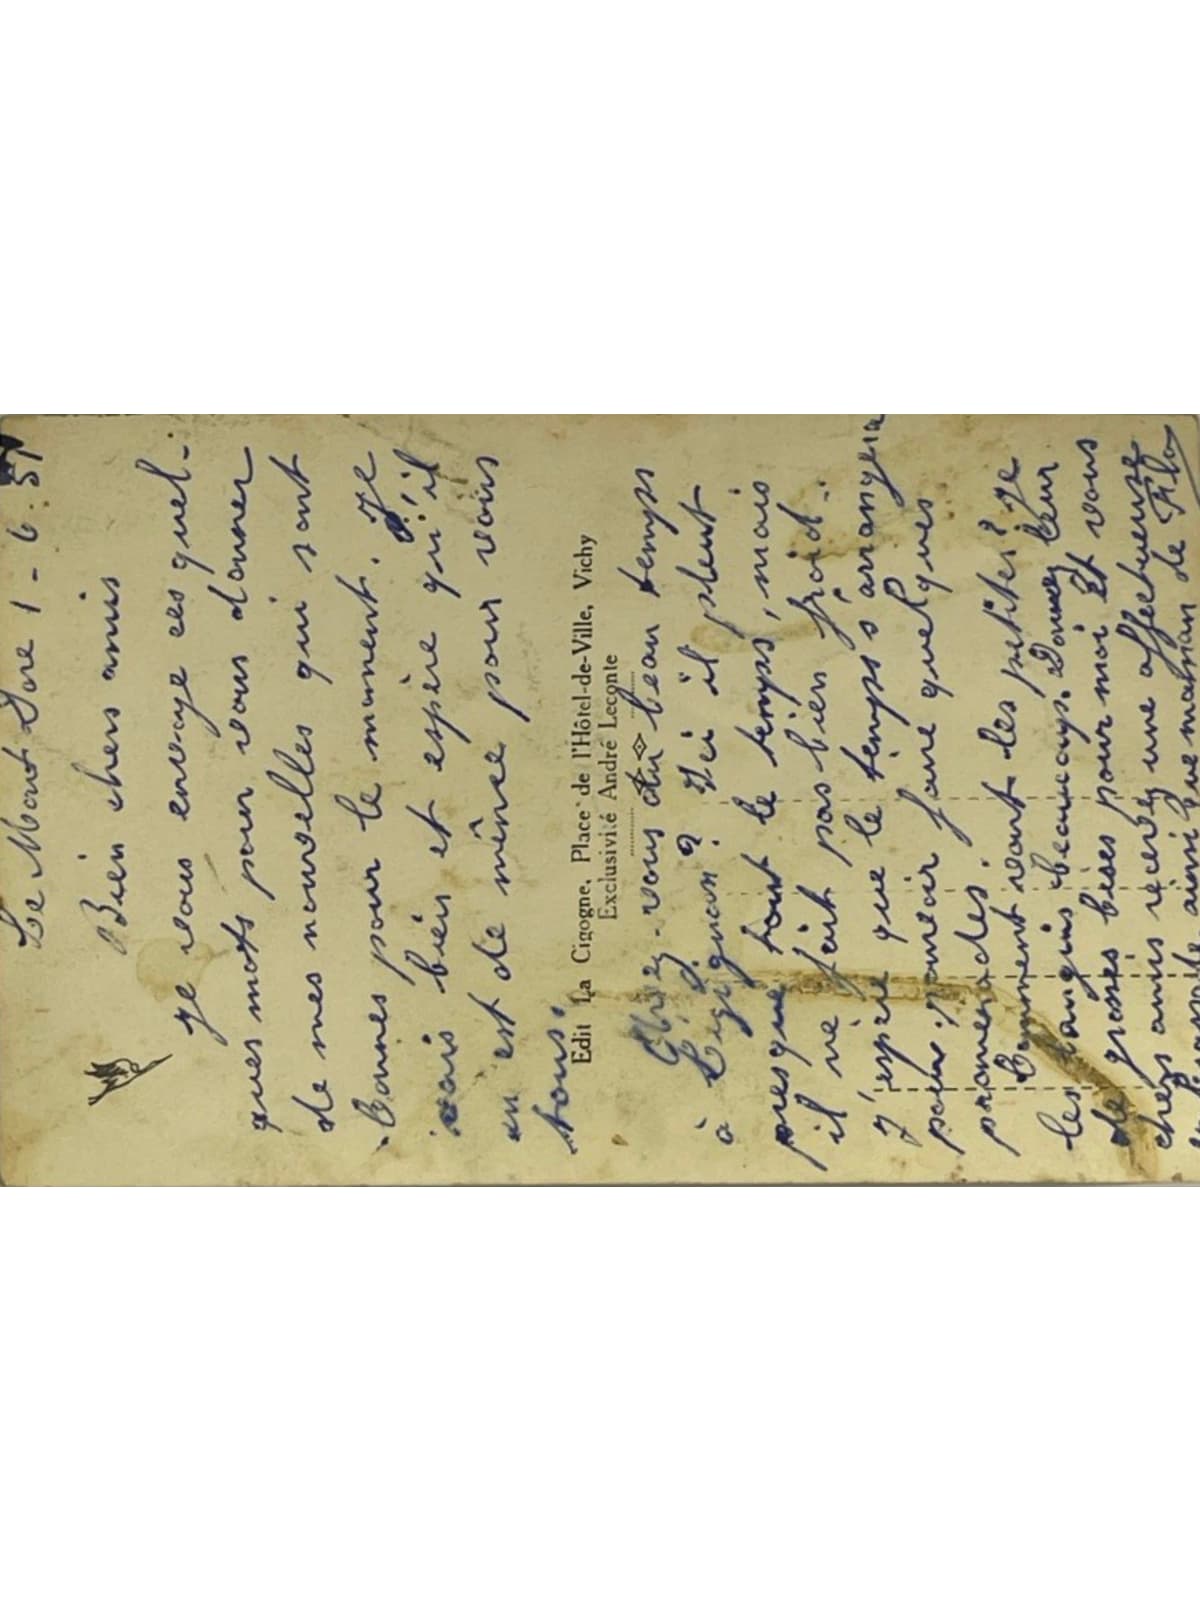 Le Mont Dore 1 - 6. 57
Bien chers amis
Je vous envoye ces quel-
ques mots pour vous donner
de mes nouvelles qui sont
bonnes pour le moment. Je
vais bien et espère qu'il
en est de même pour vous
tous.
Edit La Cigogne, Place de l'Hôtel-de-Ville, Vichy
Exclusivité André Leconte
Avez-vous du beau temps
à ? Ici il pleut
presque tout le temps, mais
il ne fait pas bien froid.
J'espère que le temps s'arrangera
pour pouvoir faire quelques
promenades.
Comment vont les petites? Je
les languis beaucoup. Donnez leur
de grosses bises pour moi et vous
chers amis recevez une affectueuse
ainsi que maman de Flo